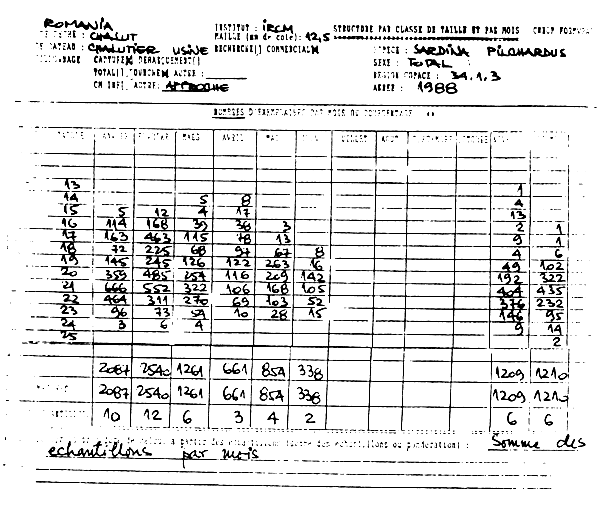 ROMANIA INSTITUT : IRCM STRUCTURE PAR CLASSE DE TAILLE ET PAR MOIS
CHALUT MAILLE (mm de cote): 12,5
CHALUTIER USINE RECHERCHE[] COMMERCIAL ESPECE : SARDINA PILCHARDUS
CAPTURE DEBARQUEMENT[] SEXE : TOTAL
TOTAL[] AUTRE : REGION COPACE : 34.1.3
CM INF[] AUTRE: APPROCHE ANNEE : 1988
NOMBRES D'EXEMPLAIRES PAR MOIS OU POURCENTAGE
MARS AVRIL MAI JUILLET AOUT
13 1
14 5 8 4
15 5 12 4 17 13
16 114 168 39 38 3 2 1
17 163 463 115 78 13 9 1
18 72 225 68 97 67 8 4 6
19 145 245 126 122 263 16 49 102
20 359 485 254 116 209 142 192 322
21 666 552 322 106 168 105 404 435
22 464 311 270 69 103 52 376 232
23 96 73 54 10 28 15 146 95
24 3 6 4 9 14
25 2
2087 2540 1261 661 854 338 1209 1210
2087 2540 1261 661 854 338 1209 1210
10 12 6 3 4 2 6 6
a partir des echantillons des echantillons ou ponderation) : Somme des
echantillons par mois